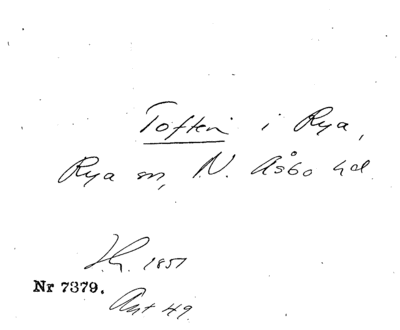 Toften i Rya,
Rya sn, N. Åsbo hd
1851
Nr 7379.
Ant 49